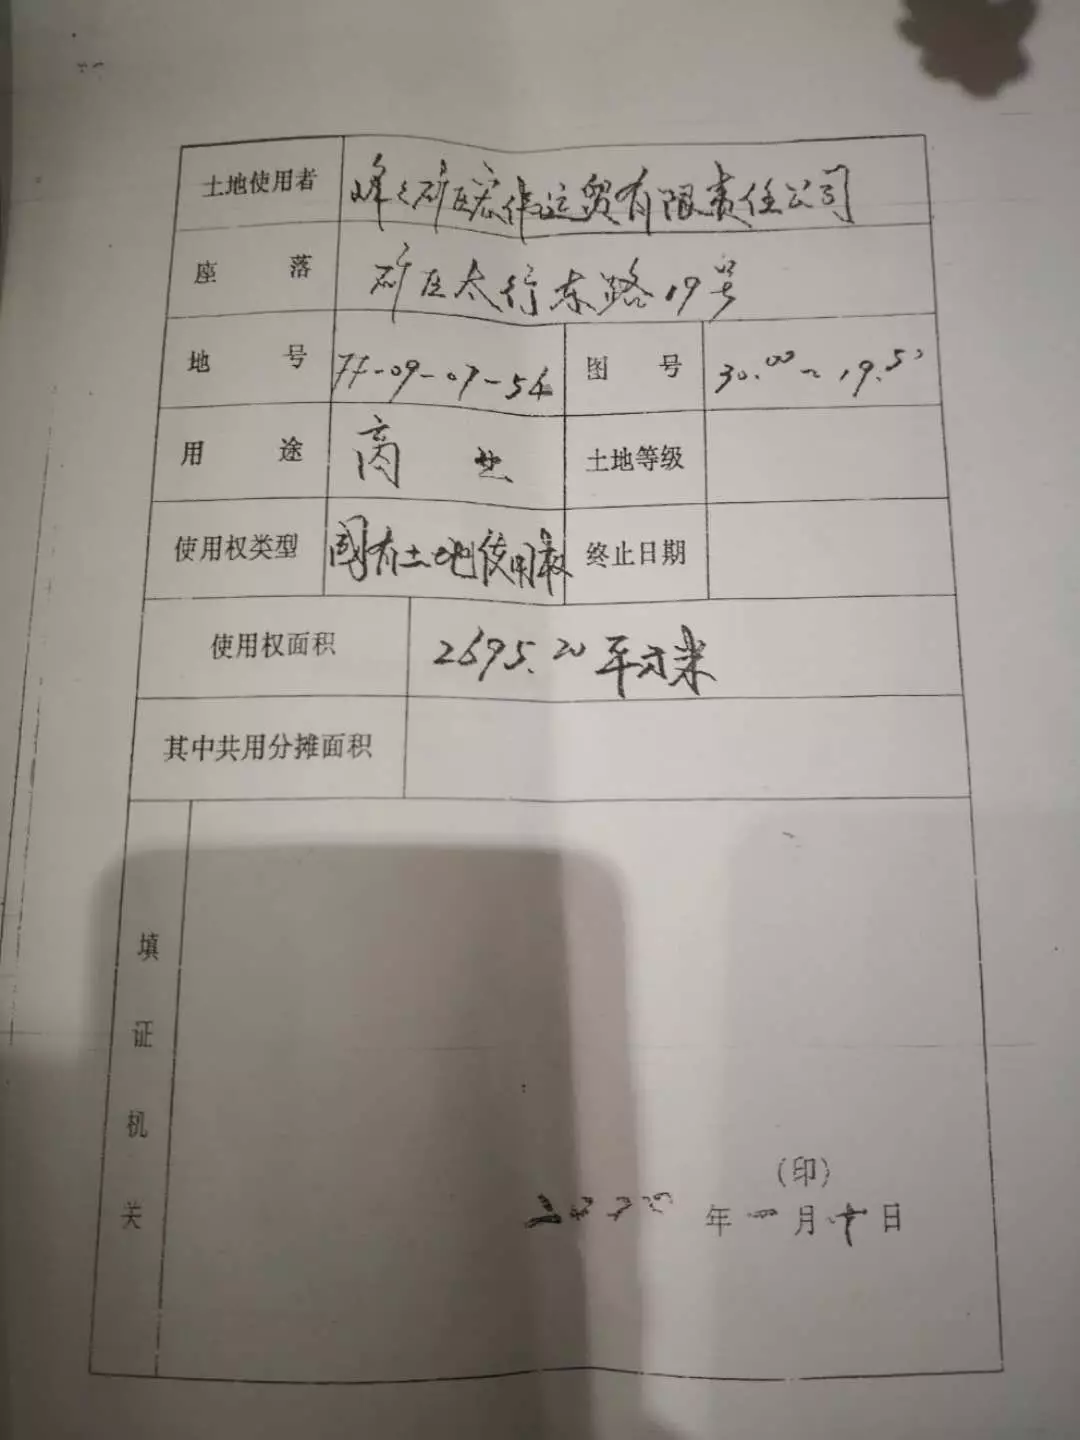 土地使用者 峰峰矿区宏伟运贸有限责任公司
座落 矿区太行东路19号
地号 77-09-07-54 图号 30.00~19.50
用途 商业 土地等级
使用权类型 国有土地使用权 终止日期
使用权面积 2695.20平方米
其中共用分摊面积
填证机关
(印)
年 月 日